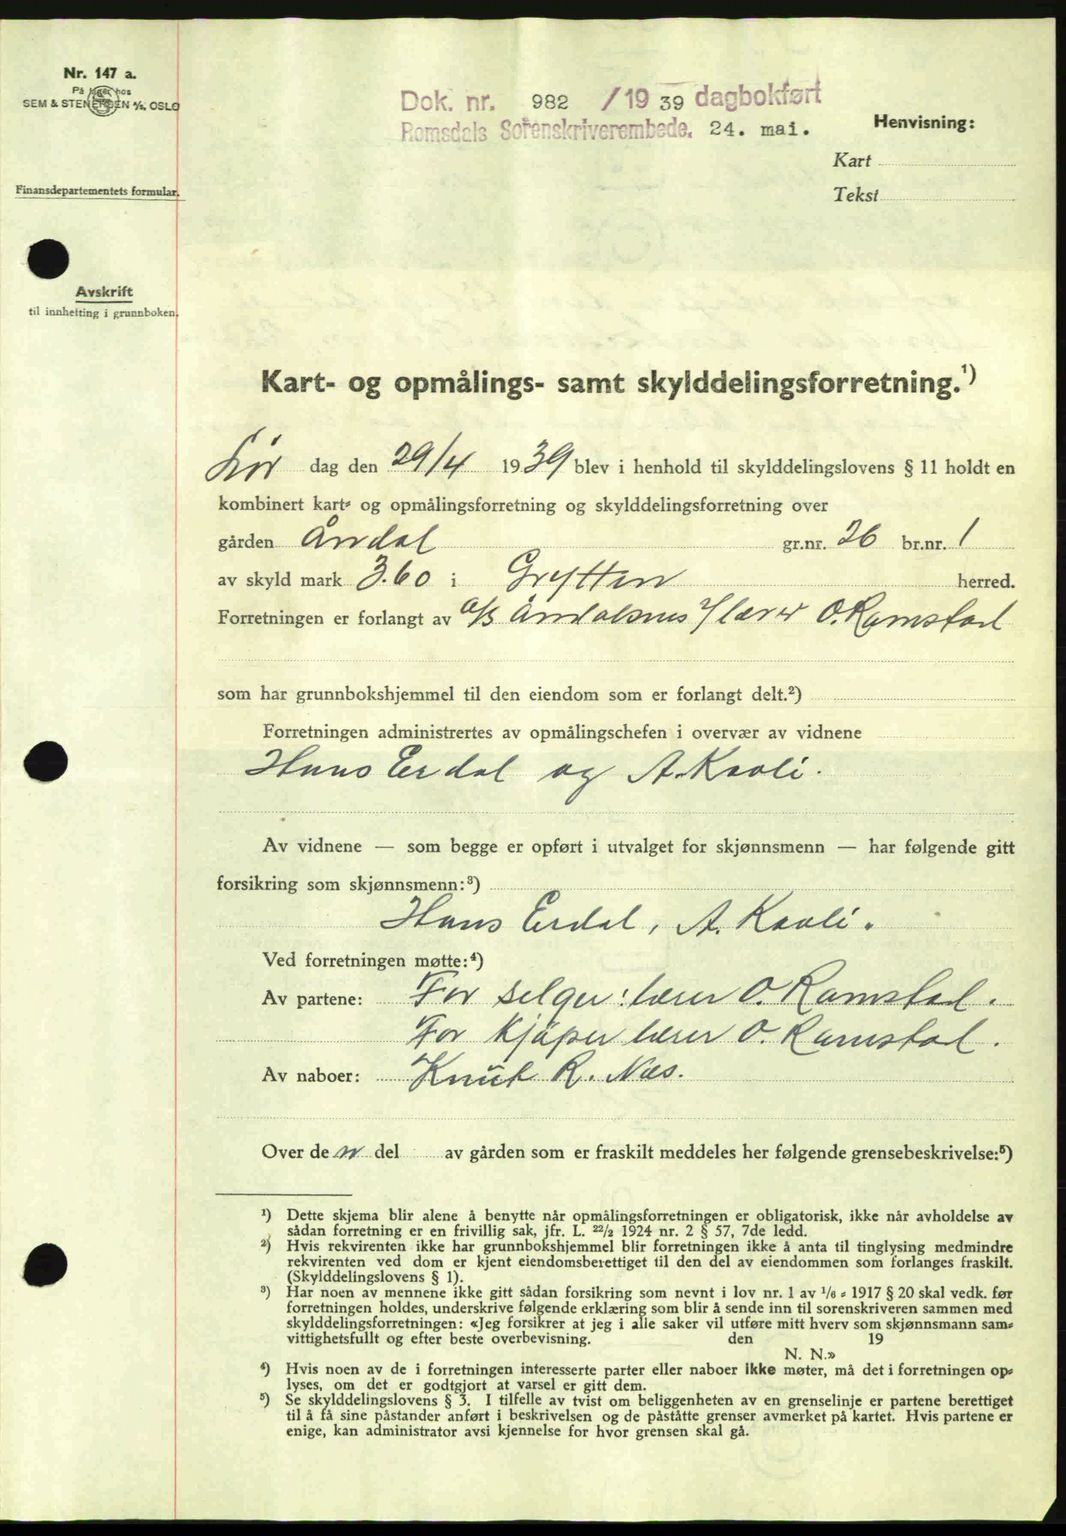 Nr. 147 a.
På lager hos
SEM & STENERSEN A/S. OSLO
Finansdepartementets formular.
Avskrift
til innhefting i grunnboken.
Dok. nr. 982 /19 39 dagbokført
Romsdals Sorenskriverembede. 24. mai.
Henvisning:
Kart
Tekst
Kart- og opmålings- samt skylddelingsforretning.¹)
Lør dag den 29/4 1939 blev i henhold til skylddelingslovens § 11 holdt en
kombinert kart- og opmålingsforretning og skylddelingsforretning over
gården Åndal gr.nr. 26 br.nr. 1
av skyld mark 3.60 i Grytten herred.
Forretningen er forlangt av a/s Åndalsnes v/lærer O. Ramstad
som har grunnbokshjemmel til den eiendom som er forlangt delt.²)
Forretningen administrertes av opmålingschefen i overvær av vidnene
Hans Erdal og A. Kavli.
Av vidnene — som begge er opført i utvalget for skjønnsmenn — har følgende gitt
forsikring som skjønnsmenn:³)
Hans Erdal, A. Kavli.
Ved forretningen møtte:⁴)
Av partene: For selger: lærer O. Ramstad.
For Kjøper lærer O. Ramstad.
Av naboer: Knut R. Næs.
Over de n del av gården som er fraskilt meddeles her følgende grensebeskrivelse:⁵)
¹) Dette skjema blir alene å benytte når opmålingsforretningen er obligatorisk, ikke når avholdelse av
sådan forretning er en frivillig sak, jfr. L. 22/2 1924 nr. 2 § 57, 7de ledd.
²) Hvis rekvirenten ikke har grunnbokshjemmel blir forretningen ikke å anta til tinglysing medmindre
rekvirenten ved dom er kjent eiendomsberettiget til den del av eiendommen som forlanges fraskilt.
(Skylddelingslovens § 1).
³) Har noen av mennene ikke gitt sådan forsikring som nevnt i lov nr. 1 av 1/6 - 1917 § 20 skal vedk. før
forretningen holdes, underskrive følgende erklæring som blir å sende inn til sorenskriveren sammen med
skylddelingsforretningen: «Jeg forsikrer at jeg i alle saker vil utføre mitt hverv som skjønnsmann sam-
vittighetsfullt og efter beste overbevisning. den 19
N. N.»
⁴) Hvis noen av de i forretningen interesserte parter eller naboer ikke møter, må det i forretningen op-
lyses, om det er godtgjort at varsel er gitt dem.
⁵) Se skylddelingslovens § 3. I tilfelle av tvist om beliggenheten av en grenselinje er partene berettiget
til å få sine påstander anført i beskrivelsen og de påståtte grenser avmerket på kartet. Hvis partene er
enige, kan administrator avsi kjennelse for hvor grensen skal gå.